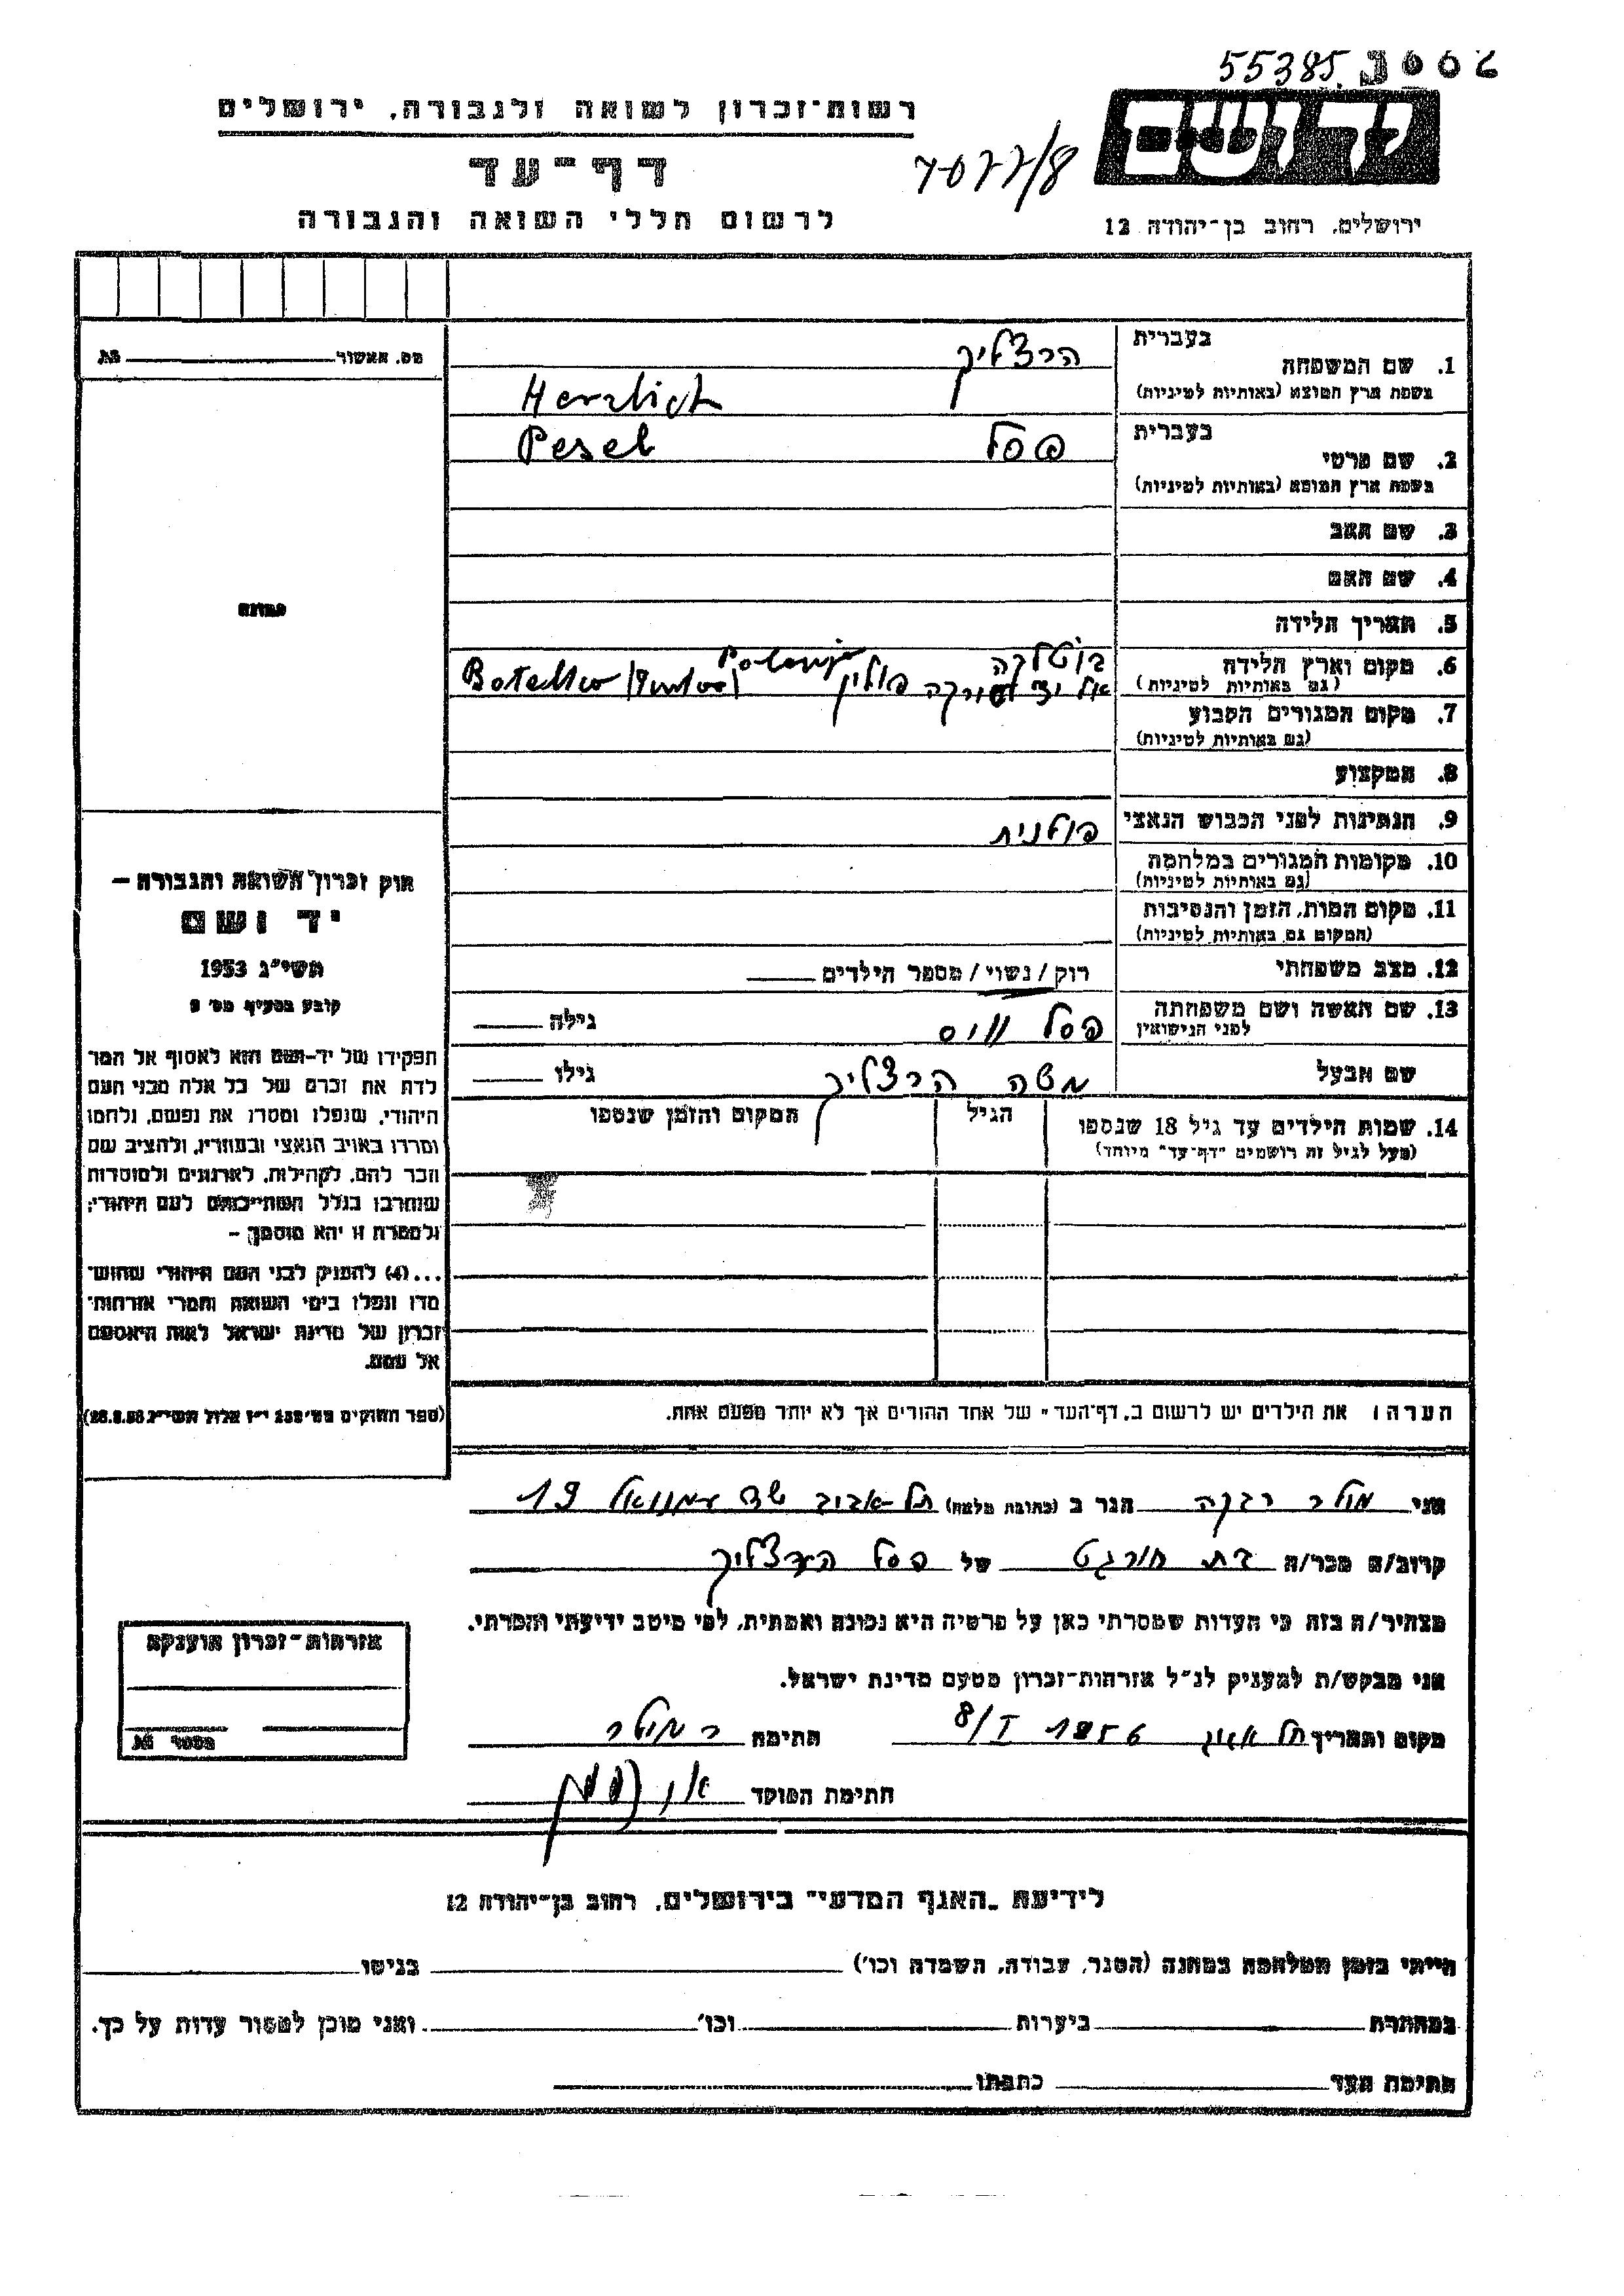 55385
רשות-זכרון לשואה ולגבורה, ירושלים
דף-עד
7077/8
לרשום חללי השואה והגבורה
ירושלים, רחוב בן-יהודה 12
מס. אשור
בעברית
הרצליך
1. שם המשפחה
בשפת ארץ המוצא (באותיות לטיניות)
Herzlich
בעברית
פסל
Pesel
2. שם פרטי
בשפת ארץ המוצא (באותיות לטיניות)
3. שם האב
4. שם האם
תמונה
5. תאריך הלידה
6. מקום וארץ הלידה
(גם באותיות לטיניות)
פולין
7. מקום המגורים הקבוע
(גם באותיות לטיניות)
8. המקצוע
9. הנתינות לפני הכבוש הנאצי
פולנית
10. מקומות המגורים במלחמה
(גם באותיות לטיניות)
11. מקום המות, הזמן והנסיבות
(המקום גם באותיות לטיניות)
12. מצב משפחתי
רוק / נשוי / מספר הילדים
13. שם האשה ושם משפחתה
לפני הנישואין
פסל ווייס
גילה
שם הבעל
משה הרצליך
גילו
14. שמות הילדים עד גיל 18 שנספו
(מעל לגיל זה רושמים "דף-עד" מיוחד)
הגיל
המקום והזמן שנספו
חוק זכרון השואה והגבורה –
יד ושם
תשי"ג 1953
קובע בסעיף מס' 2
תפקידו של יד-ושם הוא לאסוף אל המו
לדת את זכרם של כל אלה מבני העם
היהודי, שנפלו ומסרו את נפשם, נלחמו
ומרדו באויב הנאצי ובעוזריו, ולהציב שם
וזכר להם, לקהילות, לארגונים ולמוסדות
שנחרבו בגלל השתייכותם לעם היהודי;
ולמטרה זו יהא מוסמך –
...(4) להעניק לבני העם היהודי שהוש-
מדו ונפלו בימי השואה והמרי אזרחות-
זכרון של מדינת ישראל לאות היאספם
אל עמם.
(ספר החוקים מס' 132 י"ז אלול תשי"ג 28.8.53)
הערה: את הילדים יש לרשום ב"דף-העד" של אחד ההורים אך לא יותר מפעם אחת.
אני מולר רבקה הגר ב (כתובת מלאה) תל-אביב שד עמנואל 19
קרוב/ה מכר/ה של פסל הרצליך
מצהיר/ה בזה כי העדות שמסרתי כאן על פרטיה היא נכונה ואמתית, לפי מיטב ידיעתי והכרתי.
אני מבקש/ת להעניק לנ"ל אזרחות-זכרון מטעם מדינת ישראל.
מקום ותאריך תל אביב 8/I 1956 חתימה ר מולר
חתימת הפוקד
אזרחות-זכרון הוענקה
מספר
לידיעת "האגף המדעי" בירושלים, רחוב בן-יהודה 12
הייתי בזמן המלחמה במחנה (הסגר, עבודה, השמדה וכו') בגיטו
במחתרת ביערות וכו' ואני מוכן למסור עדות על כך.
חתימת העד כתבתו